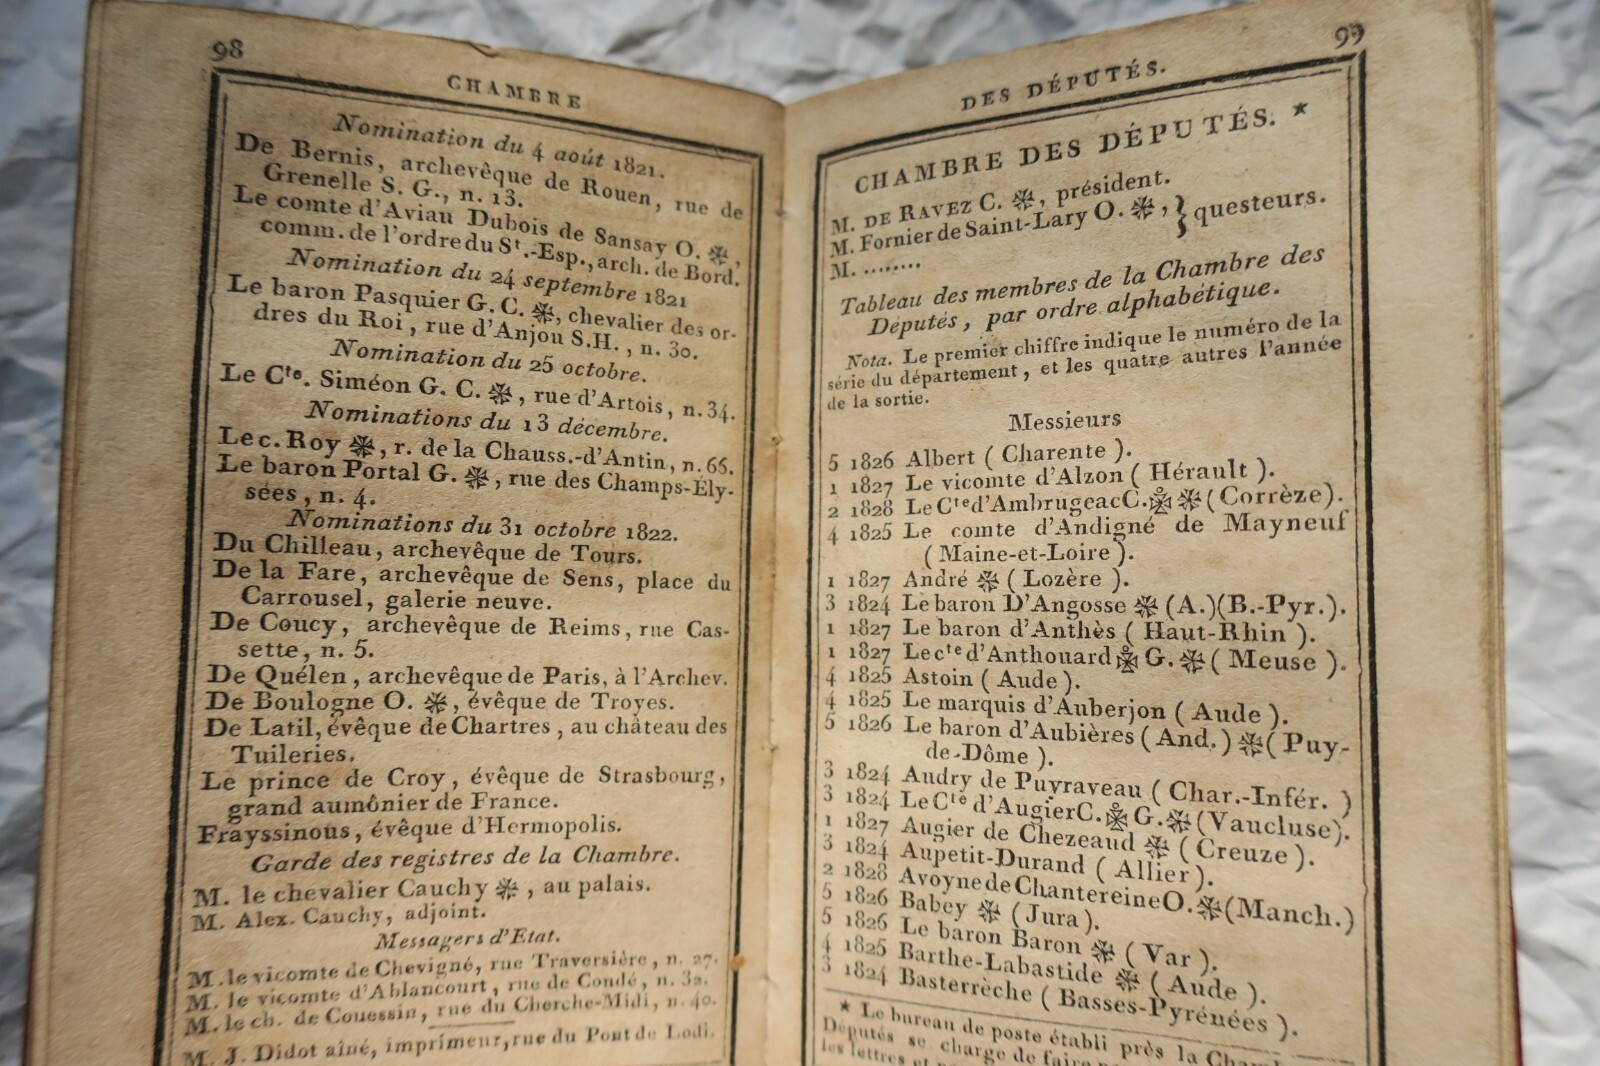 98
CHAMBRE
Nomination du 4 août 1821.
De Bernis, archevêque de Rouen, rue de
Grenelle S. G., n. 13.
Le comte d'Aviau Dubois de Sansay O. ❋,
comm. de l'ordre du St.-Esp., arch. de Bord.
Nomination du 24 septembre 1821
Le baron Pasquier G. C. ❋, chevalier des or-
dres du Roi, rue d'Anjou S.H., n. 30.
Nomination du 25 octobre.
Le Cte. Siméon G. C. ❋, rue d'Artois, n. 34.
Nominations du 13 décembre.
Le c. Roy ❋, r. de la Chauss.-d'Antin, n. 66.
Le baron Portal G. ❋, rue des Champs-Ély-
sées, n. 4.
Nominations du 31 octobre 1822.
Du Chilleau, archevêque de Tours.
De la Fare, archevêque de Sens, place du
Carrousel, galerie neuve.
De Coucy, archevêque de Reims, rue Cas-
sette, n. 5.
De Quélen, archevêque de Paris, à l'Archev.
De Boulogne O. ❋, évêque de Troyes.
De Latil, évêque de Chartres, au château des
Tuileries.
Le prince de Croy, évêque de Strasbourg,
grand aumônier de France.
Frayssinous, évêque d'Hermopolis.
Garde des registres de la Chambre.
M. le chevalier Cauchy ❋, au palais.
M. Alex. Cauchy, adjoint.
Messagers d'Etat.
M. le vicomte de Chevigné, rue Traversière, n. 27.
M. le vicomte d'Ablancourt, rue de Condé, n. 32.
M. le ch. de Couessin, rue du Cherche-Midi, n. 40.
M. J. Didot aîné, imprimeur, rue du Pont de Lodi.
99
DES DÉPUTÉS.
CHAMBRE DES DÉPUTÉS. *
M. DE RAVEZ C. ❋, président.
M. Fornier de Saint-Lary O. ❋, } questeurs.
M. ........
Tableau des membres de la Chambre des
Députés, par ordre alphabétique.
Nota. Le premier chiffre indique le numéro de la
série du département, et les quatre autres l'année
de la sortie.
Messieurs
5 1826 Albert ( Charente ).
1 1827 Le vicomte d'Alzon ( Hérault ).
2 1828 Le Cte d'Ambrugeac C. ✠ ❋ ( Corrèze ).
4 1825 Le comte d'Andigné de Mayneuf
( Maine-et-Loire ).
1 1827 André ❋ ( Lozère ).
3 1824 Le baron D'Angosse ❋ (A.)(B.-Pyr.).
1 1827 Le baron d'Anthès ( Haut-Rhin ).
1 1827 Le cte d'Anthouard ✠ G. ❋ ( Meuse ).
4 1825 Astoin ( Aude ).
4 1825 Le marquis d'Auberjon ( Aude ).
5 1826 Le baron d'Aubières ( And. ) ❋ ( Puy-
de-Dôme ).
3 1824 Audry de Puyraveau ( Char.-Infér. )
3 1824 Le Cte d'Augier C. ✠ G. ❋ (Vaucluse).
1 1827 Augier de Chezeaud ❋ ( Creuze ).
3 1824 Aupetit-Durand ( Allier ).
2 1828 Avoyne de Chantereine O. ❋ (Manch.)
5 1826 Babey ❋ ( Jura ).
5 1826 Le baron Baron ❋ ( Var ).
4 1825 Barthe-Labastide ❋ ( Aude ).
3 1824 Basterrèche ( Basses-Pyrénées ).
* Le bureau de poste établi près la Cham
Députés se charge de faire
les lettres et